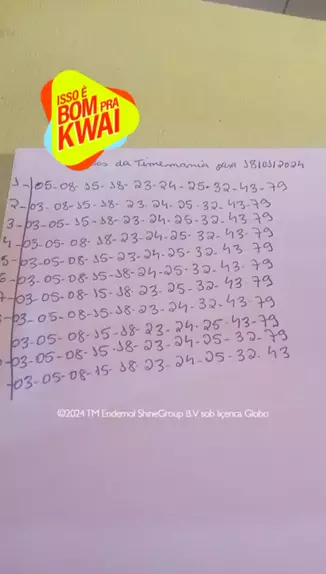 ISSO É
BOM PRA
KWAI
os da Timemania dia 18/03/2024
1-05-08-15-18-23-24-25-32-43-79
2-03-08-15-18-23-24-25-32-43-79
3-03-05-15-18-23-24-25-32-43-79
4-03-05-08-18-23-24-25-32-43-79
5-03-05-08-15-23-24-25-32-43-79
6-03-05-08-15-18-24-25-32-43-79
7-03-05-08-15-18-23-25-32-43-79
-03-05-08-15-18-23-24-32-43-79
03-05-08-15-18-23-24-25-43-79
03-05-08-15-18-23-24-25-32-79
03-05-08-15-18-23-24-25-32-43
©2024 TM Endemol ShineGroup B.V sob licença Globo